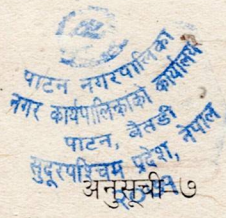 पाटन नगरपालिका
नगर कार्यपालिकाको कार्यालय
पाटन, बैतडी
सुदूरपश्चिम प्रदेश, नेपाल
अनुसूची-७